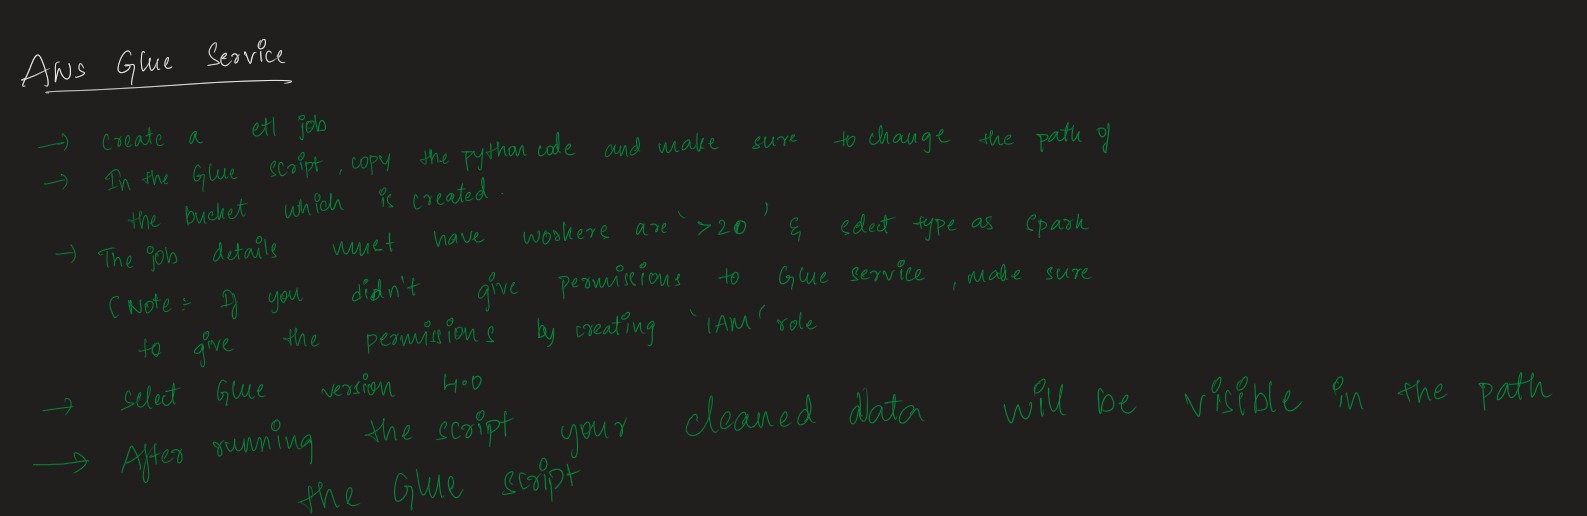 Aws Glue Service
→ create a etl job
→ In the Glue script, copy the python code and make sure to change the path of
the bucket which is created.
→ The job details must have workers are '>20' & select type as spark
(Note:- If you didn't give permissions to Glue service, make sure
to give the permissions by creating 'IAM' role
→ select Glue version 4.0
→ After running the script your cleaned data will be visible in the path
the Glue script